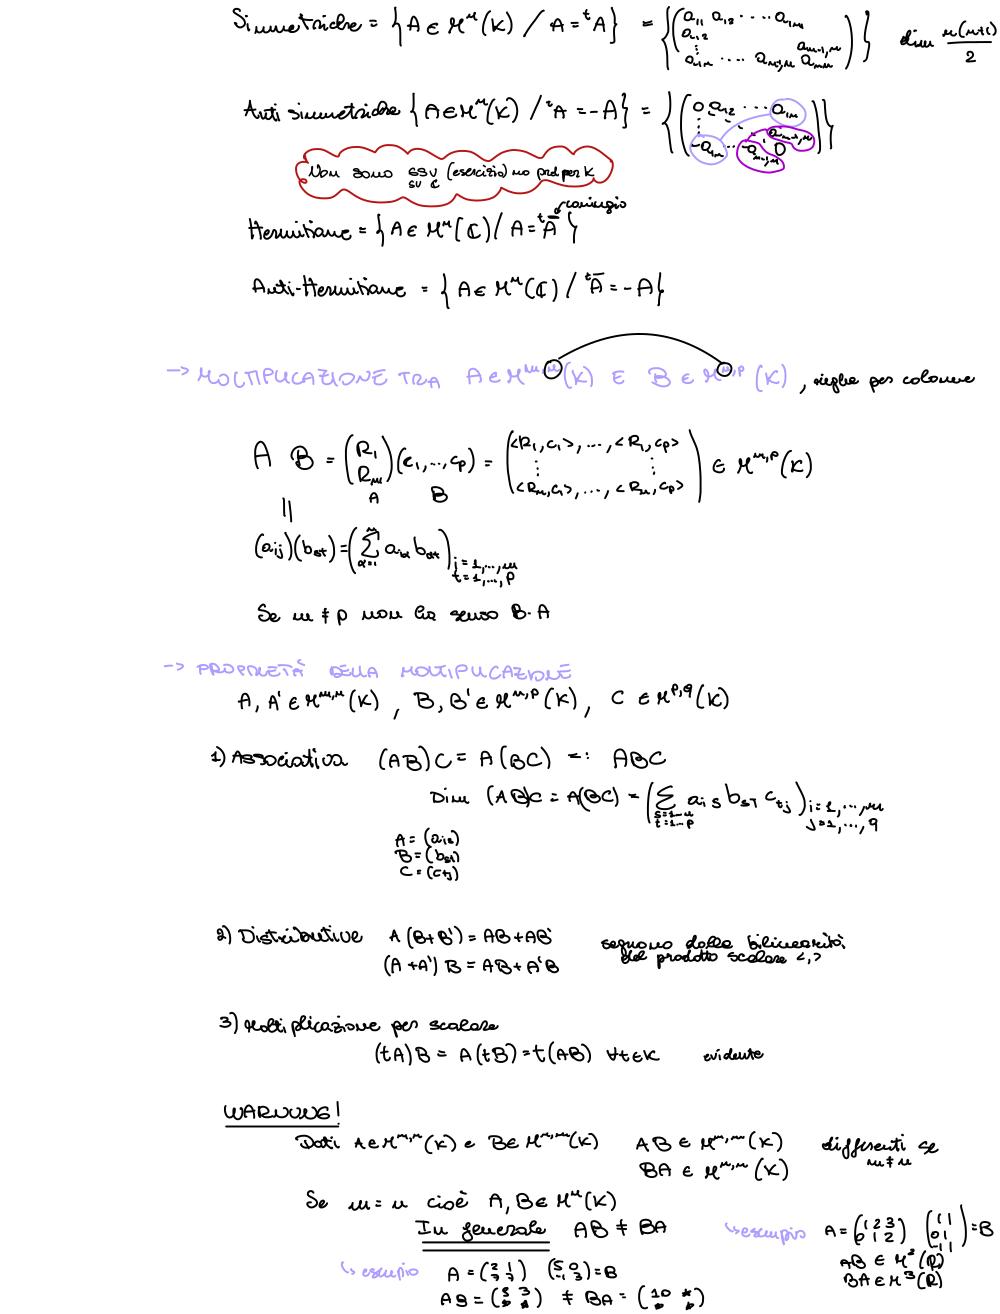 Simmetriche = { A ∈ Mⁿ(K) / A = ᵗA } = { ( a₁₁ a₁₂ .... a₁ₙ a₁₂ ⋮ aₙ₋₁,ₙ a₁ₙ .... aₙ₋₁,ₙ aₙₙ ) } dim n(n+1)/2
Anti simmetriche { A ∈ Mⁿ(K) / ᵗA = -A } = { ( 0 a₁₂ ... a₁ₙ ⋮ aₙ₋₁,ₙ -a₁ₙ ... -aₙ₋₁,ₙ 0 ) }
Non sono ssv (esercizio) no prod per K
su ℂ
coniugio
Hermitiane = { A ∈ Mⁿ(ℂ) / A = ᵗĀ }
Anti-Hermitiane = { A ∈ Mⁿ(ℂ) / ᵗĀ = -A }
-> MOLTIPLICAZIONE TRA A ∈ Mᵐ,ⁿ(K) E B ∈ Mⁿ,ᵖ(K) , righe per colonne
A B = ( R₁ Rₘ ) (c₁,...,cₚ) = ( <R₁,c₁>, ..., <R₁,cₚ> ⋮ ⋮ <Rₘ,c₁>, ..., <Rₘ,cₚ> ) ∈ Mᵐ,ᵖ(K)
A B
||
(aij)(bst) = ( Σ α=1 n aiα bαt ) i=1,...,m t=1,...,p
Se m ≠ p non ha senso B·A
-> PROPRIETÀ DELLA MOLTIPLICAZIONE
A, A' ∈ Mᵐ,ⁿ(K) , B, B' ∈ Mⁿ,ᵖ(K), C ∈ Mᵖ,q(K)
1) Associativa (AB)C = A(BC) =: ABC
Dim (AB)C = A(BC) = ( Σ s=1..n t=1..p ais bst ctj ) i=1,...,m j=1,...,q
A = (ais)
B = (bst)
C = (ctj)
2) Distributive A(B+B') = AB+AB' seguono dalla bilinearità
(A+A')B = AB+A'B del prodotto scalare <,>
3) Moltiplicazione per scalare
(tA)B = A(tB) = t(AB) ∀t∈K evidente
WARNING!
Dati A ∈ Mᵐ,ⁿ(K) e B ∈ Mⁿ,ᵐ(K) AB ∈ Mᵐ,ᵐ(K) differenti se
BA ∈ Mⁿ,ⁿ(K) m ≠ n
Se m = n cioè A, B ∈ Mⁿ(K)
In generale AB ≠ BA ↳ esempio A = ( 1 2 3 0 1 2 ) ( 1 1 0 1 -1 1 ) = B
AB ∈ M²(R)
BA ∈ M³(R)
↳ esempio